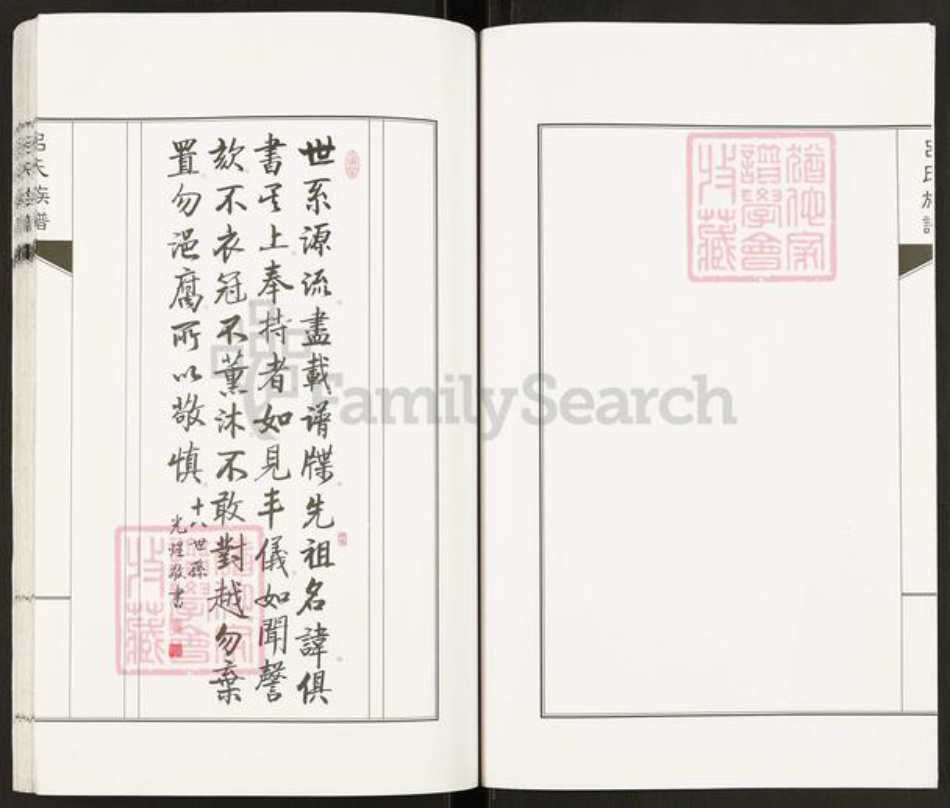 世系源流盡載譜牒先祖名諱俱
書其上奉持者如見丰儀如聞謦
欬不衣冠不薰沐不敢對越勿棄
置勿浥腐所以敬慎
十八世孫
光煌敬書
呂氏族譜
呂氏族譜
猶他家
譜學會
收藏
猶他家
譜學會
收藏
FamilySearch